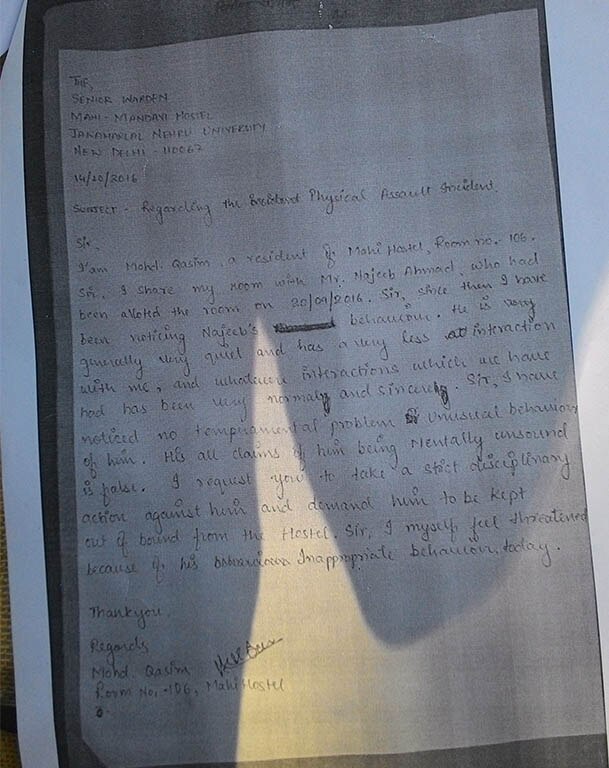 THE,
SENIOR WARDEN
MAHI-MANDAVI HOSTEL
JAWAHARLAL NEHRU UNIVERSITY
NEW DELHI - 110067
14/10/2016
SUBJECT - Regarding the Physical Assault Incident.
Sir,
I'am Mohd. Qasim, a resident of Mahi Hostel, Room no. 106.
Sir, I share my room with Mr. Najeeb Ahmad, who had
been alloted the room on 20/09/2016. Sir, since then I have
been noticing Najeeb's behaviour. He is very
generally very quiet and has a very less interaction
with me, and whatever interactions which we have
had has been very normaly and sincerely. Sir, I have
noticed no temperamental problem unusual behaviour
of him. His all claims of him being Mentally unsound
is false. I request you to take a stict disciplinary
action against him and demand him to be kept
out of bound from the Hostel. Sir, I myself feel threatened
because of his Inappropriate behaviour, today.
Thankyou
Regards
Mohd. Qasim
Room No. -106, Mahi Hostel